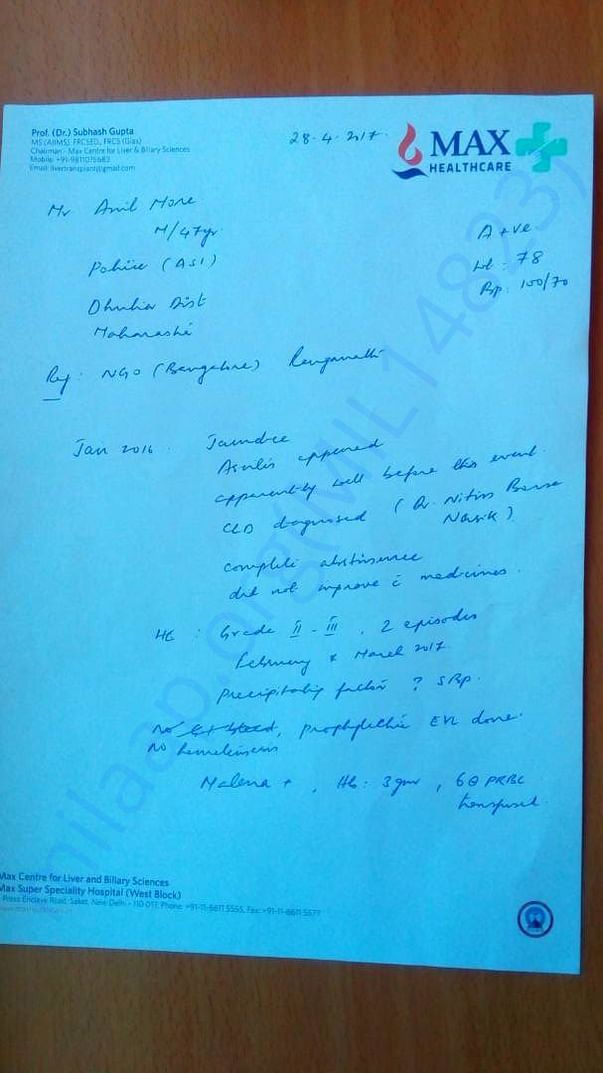 Prof. (Dr.) Subhash Gupta
MS (AIIMS), FRCSED, FRCS (Glas)
Chairman - Max Centre for Liver & Biliary Sciences
Mobile: +91-9811075683
Email: livertransplant@gmail.com
28.4.2017.
MAX
HEALTHCARE
Mr Anil More
M/47yr
A +ve
Police (ASI)
Wt = 78
Dhulia Dist
BP: 100/70
Maharashtra
Ref: NGO (Bangalore) Ranganath
Jan 2016 : Jaundice
Ascites appeared
apparently well before this event.
CLD diagnosed (Dr. Nitin
Nasik)
complete abstinence
did not improve c̄ medicines.
HE : Grade II - III, 2 episodes
February & March 2017.
Precipitating factor ? SBP.
No GI bleed, prophylactic EVL done.
No hematemesis
Malena + , Hb: 3gm, 6 PRBC
transfused.
milaap.org(MIL14823)
Max Centre for Liver and Biliary Sciences
Max Super Speciality Hospital (West Block)
Press Enclave Road, Saket, New Delhi - 110 017, Phone: +91-11-6611 5555, Fax: +91-11-6611 5577